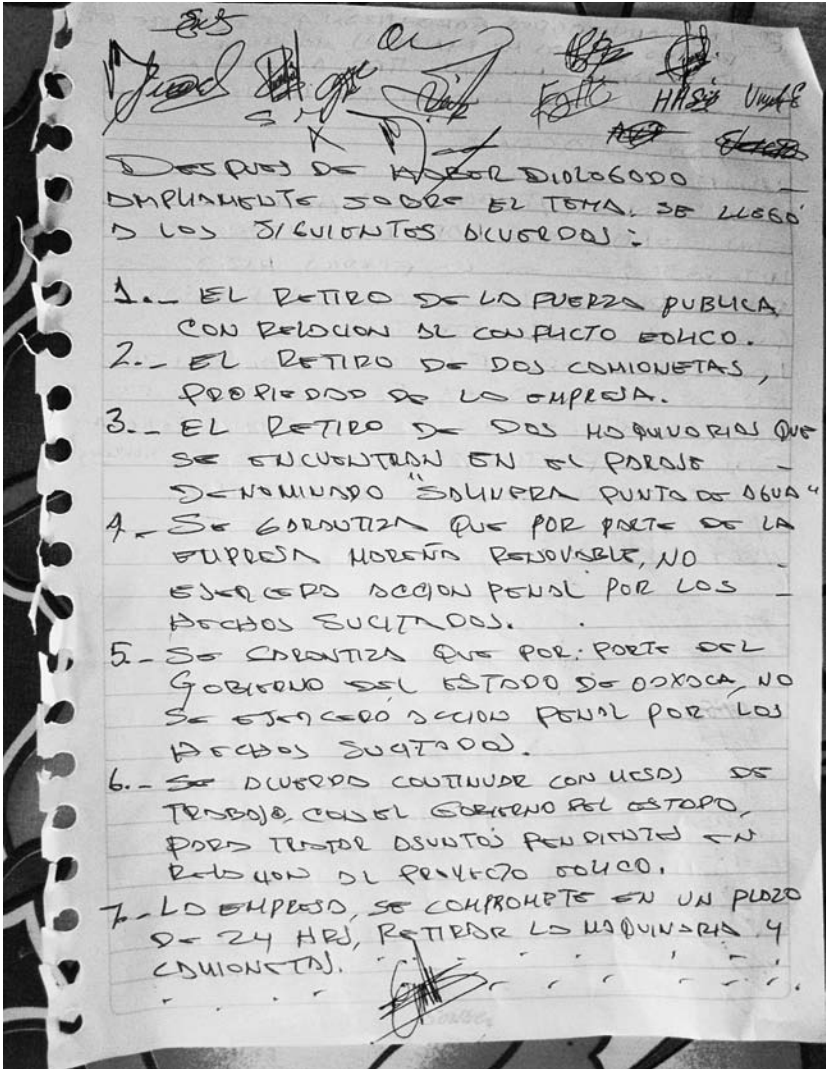 DESPUES DE HABER DIALOGADO
AMPLIAMENTE SOBRE EL TEMA, SE LLEGÓ
A LOS SIGUIENTES ACUERDOS:
1.- EL RETIRO DE LA FUERZA PUBLICA
CON RELACION AL CONFLICTO EOLICO.
2.- EL RETIRO DE DOS CAMIONETAS,
PROPIEDAD DE LA EMPRESA.
3.- EL RETIRO DE DOS MAQUINARIAS QUE
SE ENCUENTRAN EN EL PARAJE -
DENOMINADO "SALINERA PUNTA DE AGUA"
4.- SE GARANTIZA QUE POR PARTE DE LA
EMPRESA MAREÑA RENOVABLE, NO -
EJERCERA ACCION PENAL POR LOS -
HECHOS SUCITADOS.
5.- SE GARANTIZA QUE POR PARTE DEL
GOBIERNO DEL ESTADO DE OAXACA, NO
SE EJERCERÁ ACCION PENAL POR LOS
HECHOS SUCITADOS.
6.- SE ACUERDA CONTINUAR CON MESAS DE
TRABAJO, CON EL GOBIERNO DEL ESTADO,
PARA TRATAR ASUNTOS PENDIENTES EN
RELACION AL PROYECTO EOLICO.
7.- LA EMPRESA, SE COMPROMETE EN UN PLAZO
DE 24 HRS, RETIRAR LA MAQUINARIA Y
CAMIONETAS.